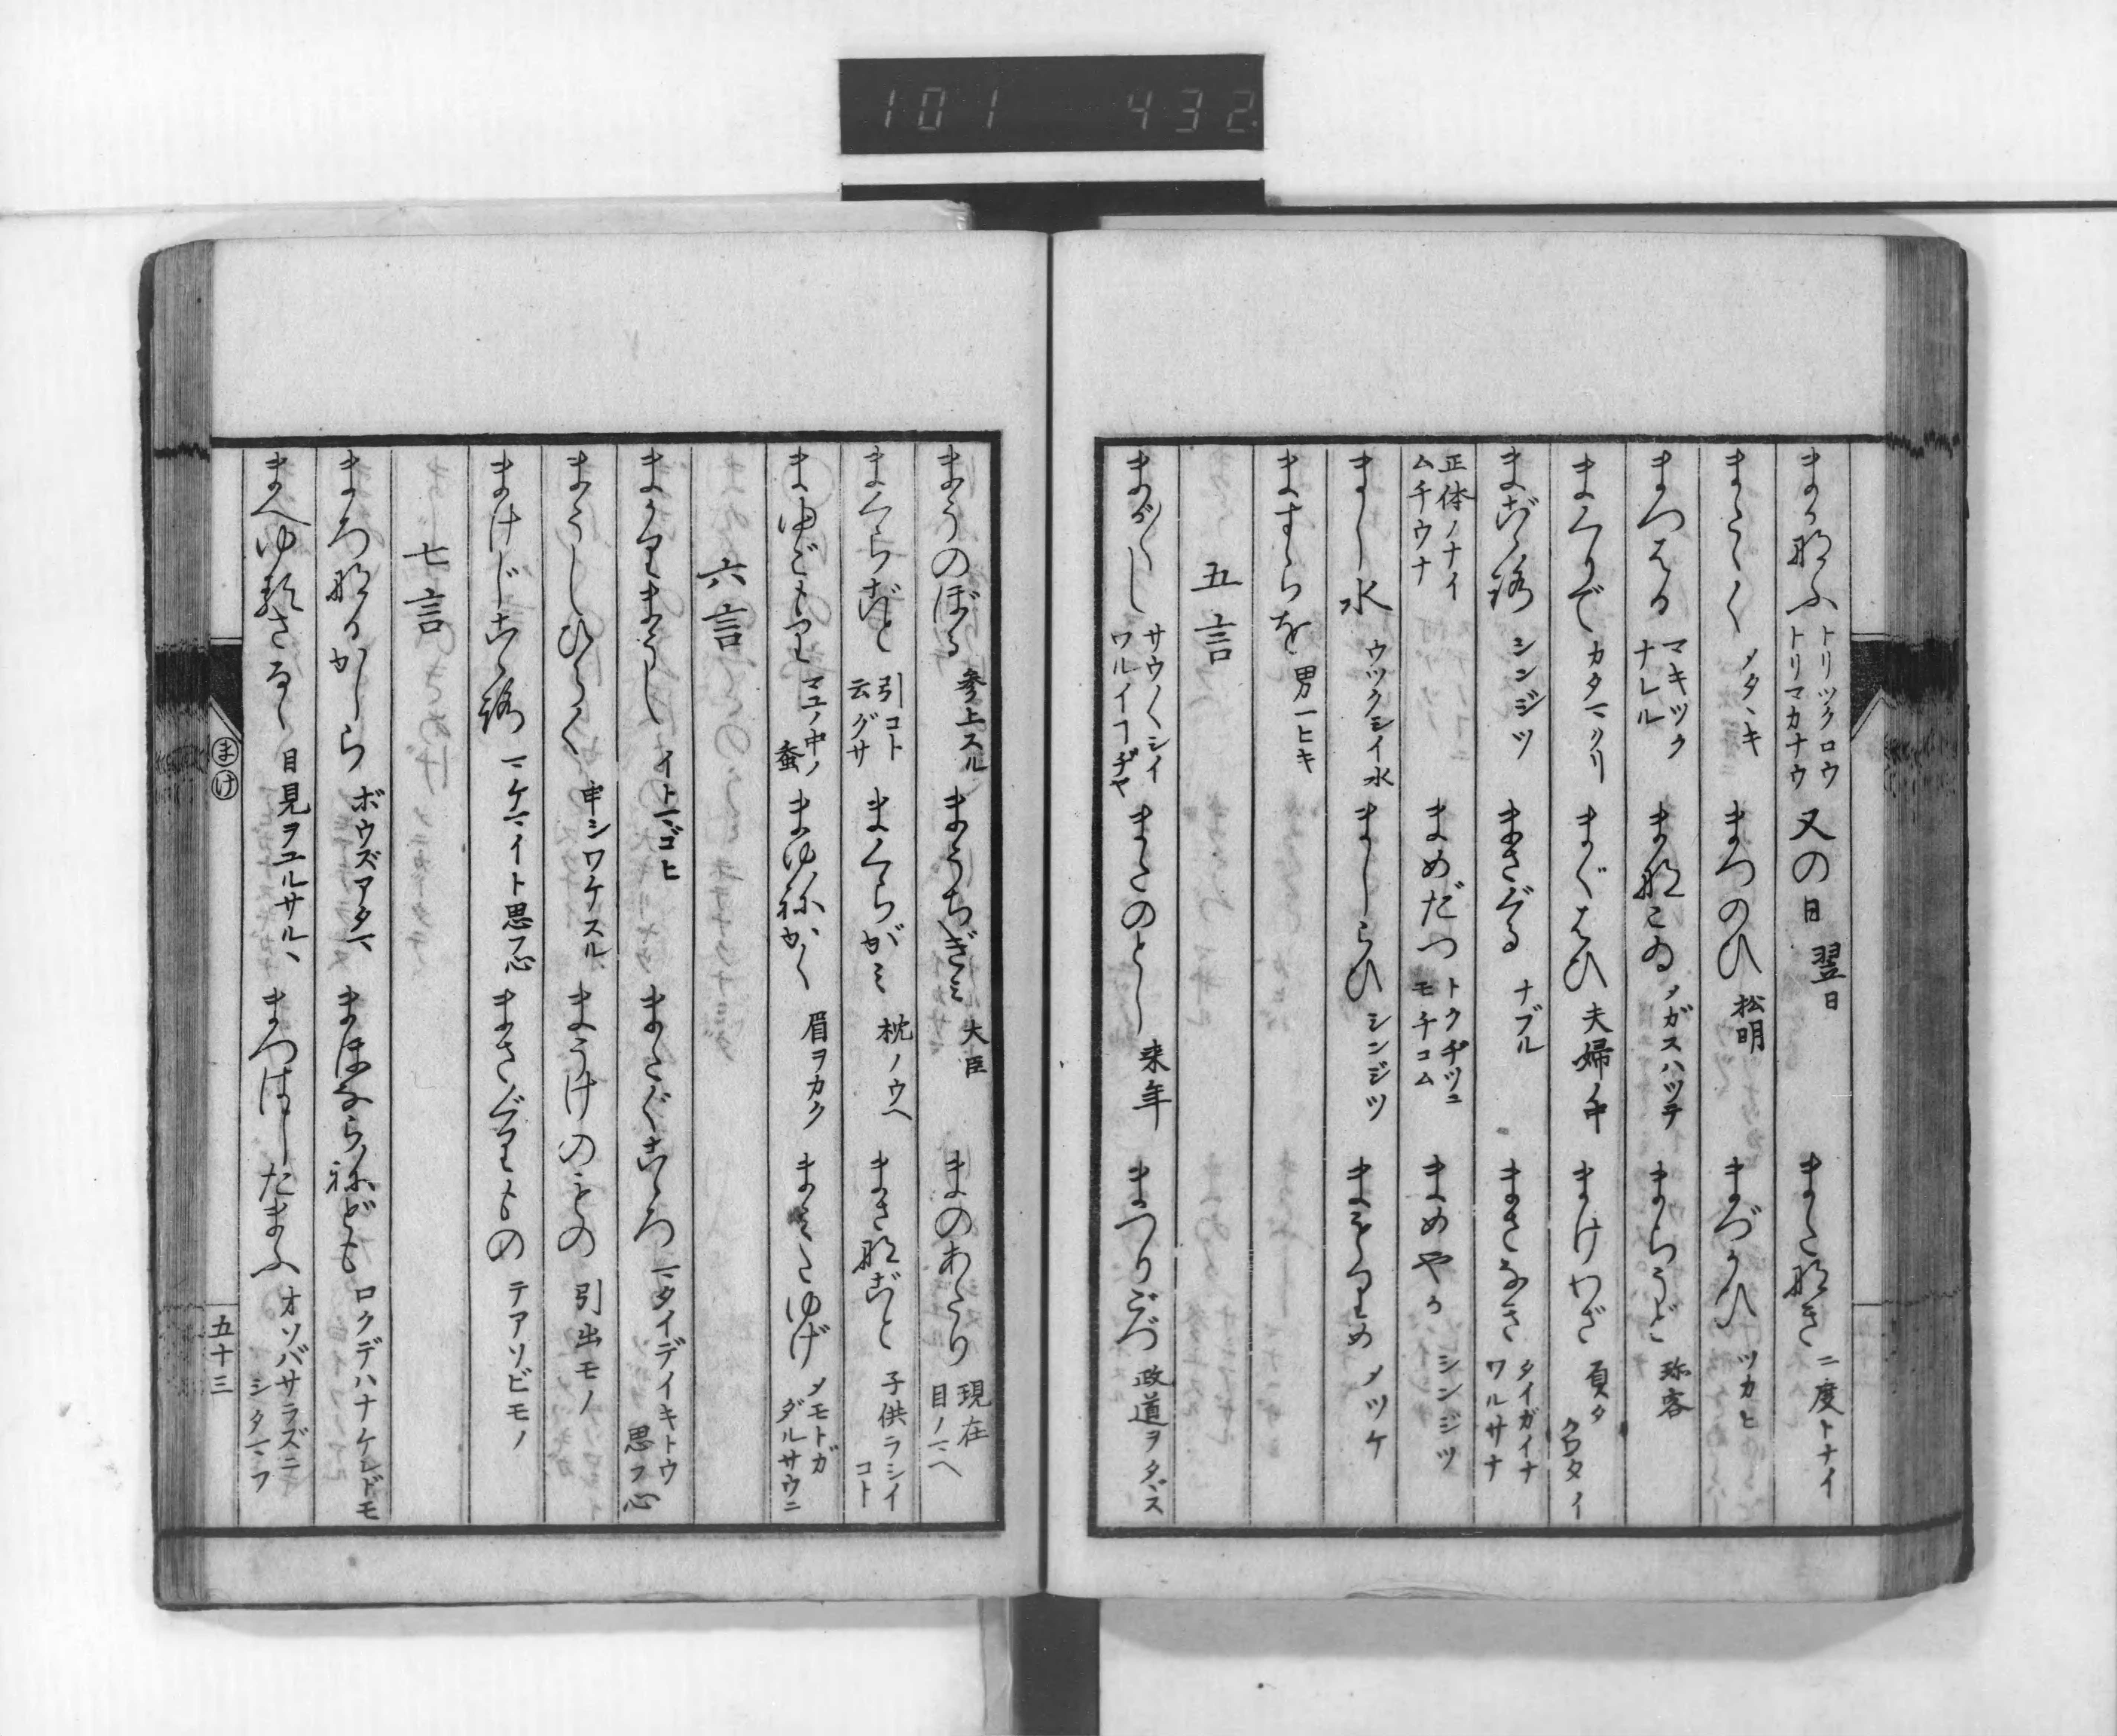 101 432
まかなふ トリツクロウ トリマカナウ 又の日 翌日 またなき 二度トナイ
またゝく メタヽキ まつのひ 松明 まづかひ ツカヒ
まつはる マキツク ナレル まなこゐ メガスハツテ まらうど 珍客
まくりで カタマクリ まぐはひ 夫婦ノ中 まけわざ 負タ クワタイ
まごゝろ シンジツ まさぐる ナブル まさなき タイガイナ ワルサナ
正体ノナイ ムチウナ まめだつ トクヂツニ モチコム まめやか シンジツ
まし水 ウツクシイ水 ましらひ シンジツ めツケ
ますらを 男一ヒキ
五言
まが〳〵し サウ〴〵シイ ワルイコヂヤ またのとし 来年 まつりごつ 政道ヲタヾス
まうのぼる 参上スル まうちぎミ 大臣 まのあたり 現在 目ノマヘ
まくらごと 引コト 云グサ まくらがミ 枕ノウヘ まさなごと 子供ラシイ コト
まゆごもり マユノ中ノ 蚕 まゆねかく 眉ヲカク まみたゆげ メモトガ ダルサウニ
六言
まかりまうし イトマゴヒ またぐこゝろ マタイデイキトウ 思フ心
まうしひらく 申シワケスル まうけのもの 引出モノ
まけじごゝろ マケマイト思フ心 まさぐりもの テアソビモノ
七言
まろなるかしら ボウズアタマ まほならねども ロクデハナケレドモ
まへゆるさるゝ 目見ヲユルサルヽ まつはしたまふ オソバサラズニ シタマフ
まけ
五十三